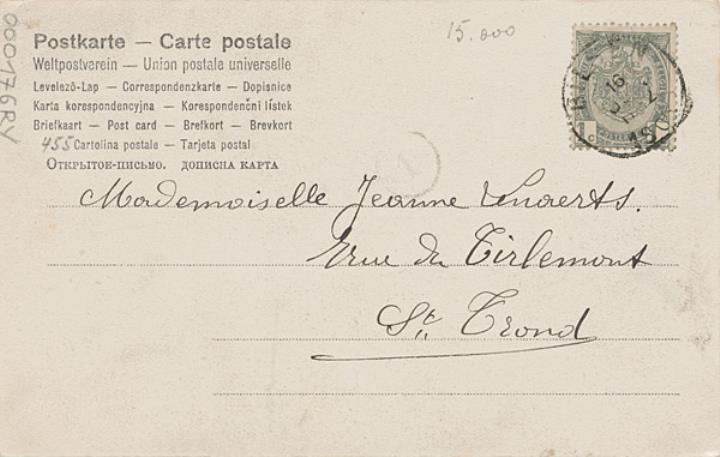 000176RY
15.000
Postkarte — Carte postale
Weltpostverein — Union postale universelle
Levelező-Lap — Correspondenzkarte — Dopisnice
Karta korespondencyjna — Korespondenční lístek
Briefkaart — Post card — Brefkort — Brevkort
455 Cartolina postale — Tarjeta postal
Открытое-письмо. дописна карта
Mademoiselle Jeanne Lenaerts.
rue de Tirlemont
St. Trond